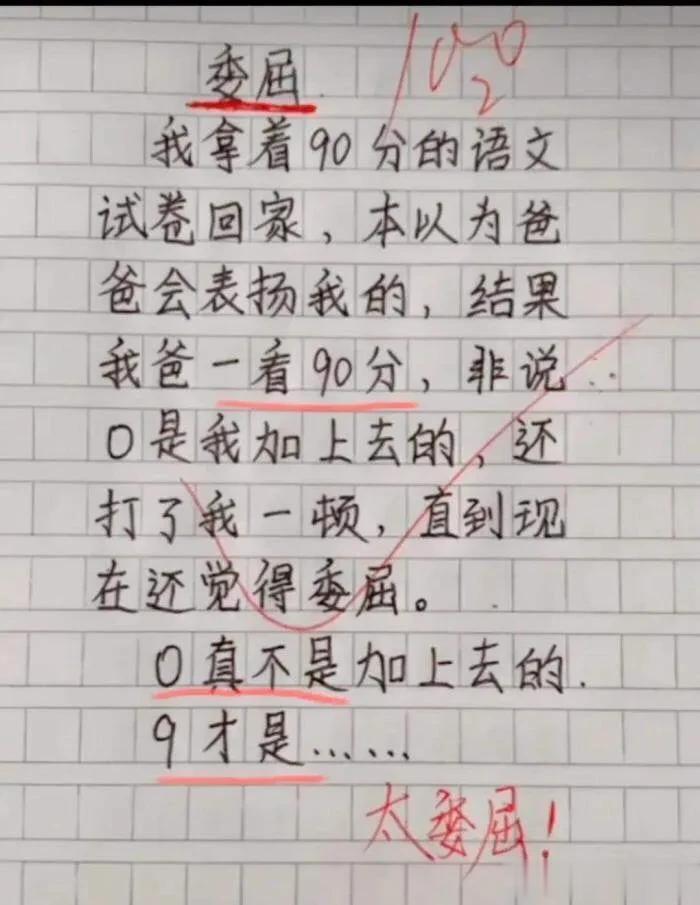 100
2
委屈.
我拿着90分的语文
试卷回家，本以为爸
爸会表扬我的，结果
我爸一看90分，非说..
0是我加上去的，还
打了我一顿，直到现
在还觉得委屈。
0真不是加上去的.
9才是……
太委屈！